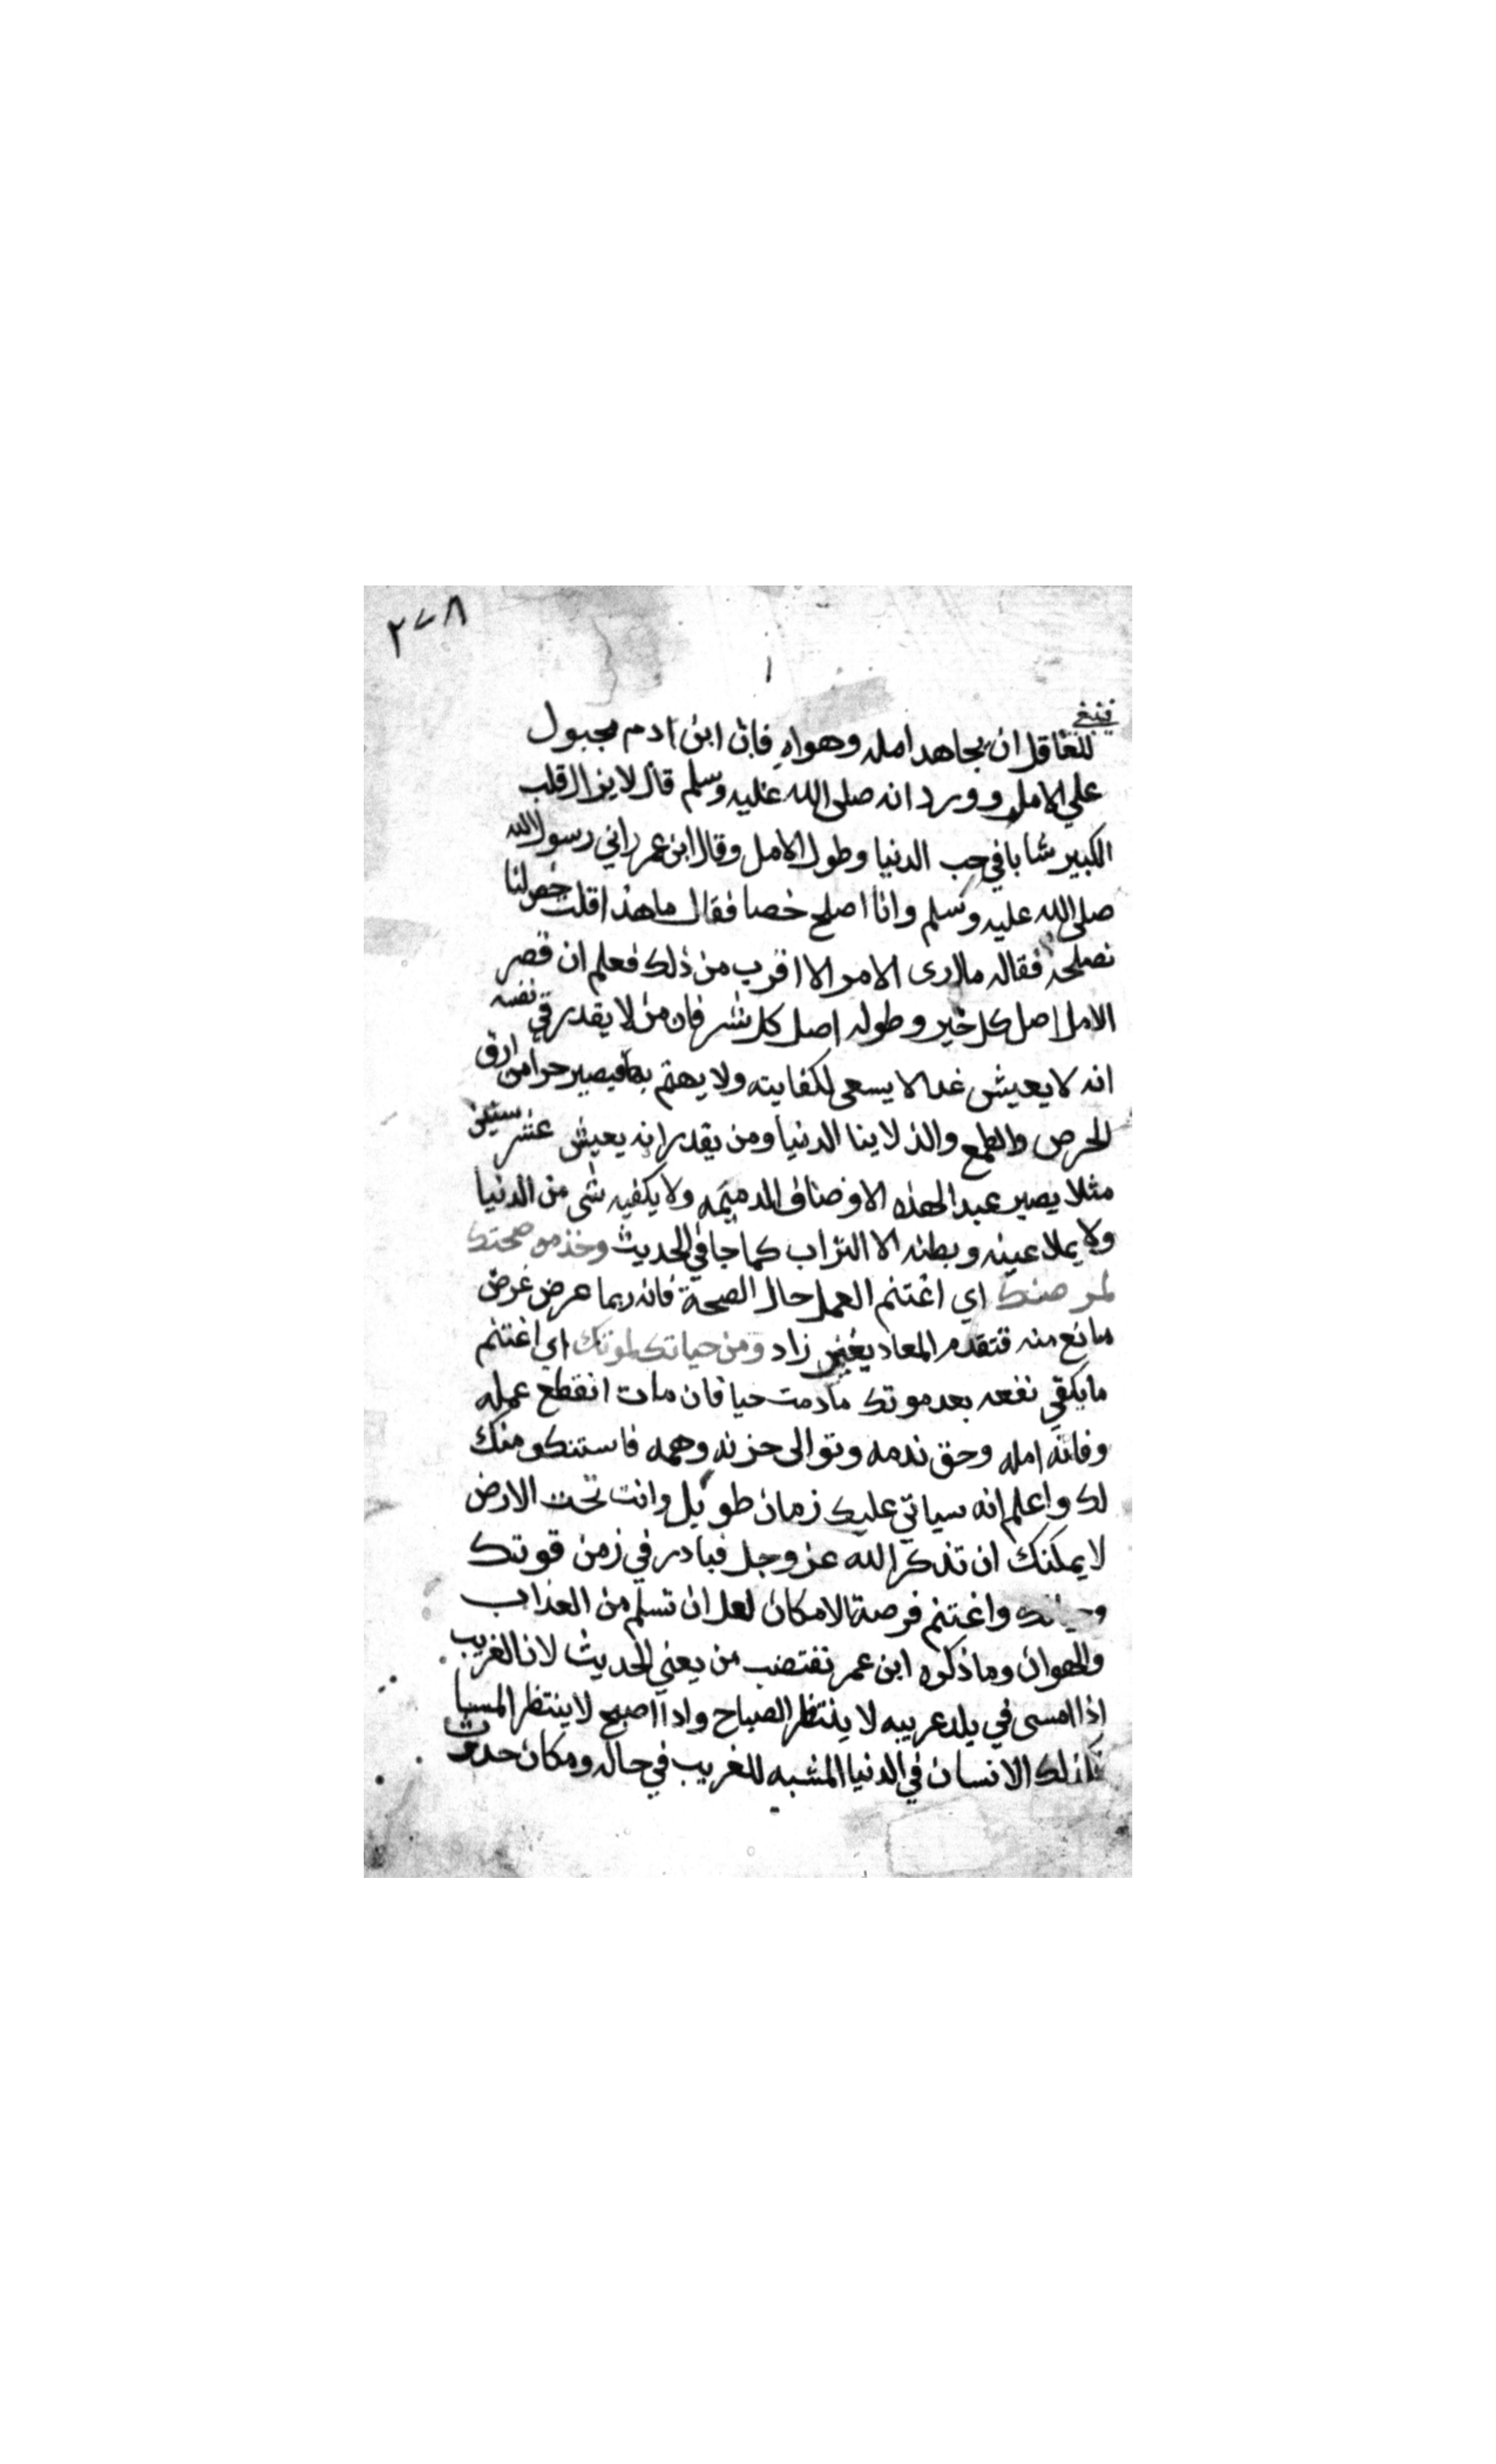 ٢٧٨
فينبغي
للعاقل ان يجاهد امله وهواه فان ابن ادم مجبول
علي الامل وورد انه صلى الله عليه وسلم قال لا يزال قلب
الكبير شابا في حب الدنيا وطول الامل وقال ابن عمر راني رسول الله
صلى الله عليه وسلم وانا اصلح خصا فقال ما هذا قلت خص لنا
نصلحه فقال ما ارى الامر الا اقرب من ذلك فعلم ان قصر
الامل اصل كل خير وطوله اصل كل شر فان من لا يقدر في نفسه
انه لا يعيش غدا لا يسعى لكفايته ولا يهتم بها فيصير حرا من ارق
الحرص والطمع والذ لابنا الدنيا ومن يقدر انه يعيش عشر سنين
مثلا يصير عبدا لهذه الاوصاف الدميمه ولا يكفيه شي من الدنيا
ولا يملا عينه وبطنه الا التراب كما جا في الحديث وخذ من صحتك
لمرضك اي اغتنم العمل حال الصحة فانه ربما عرض غرض
مانع منه فتقدم المعاد بغير زاد ومن حياتك لموتك اي اغتنم
ما يكقي نفعه بعد موتك ما دمت حيا فان مات انقطع عمله
وفاته امله وحق ندمه وتوالى حزنه وهمه فاستنكر منك
لك واعلم انه سياتي عليك زمان طويل وانت تحت الارض
لا يمكنك ان تذكر الله عز وجل فبادر في زمن قوتك
وحياتك واغتنم فرصة الامكان لعل ان تسلم من العذاب
والهوان وما ذكره ابن عمر تفتضب من يعني الحديث لان الغريب
اذا امسى في بلد غريبه لا ينتظر الصباح واذا اصبح لا ينتظر المسا
كذلك الانسان في الدنيا المشبه للغريب في حاله ومكان